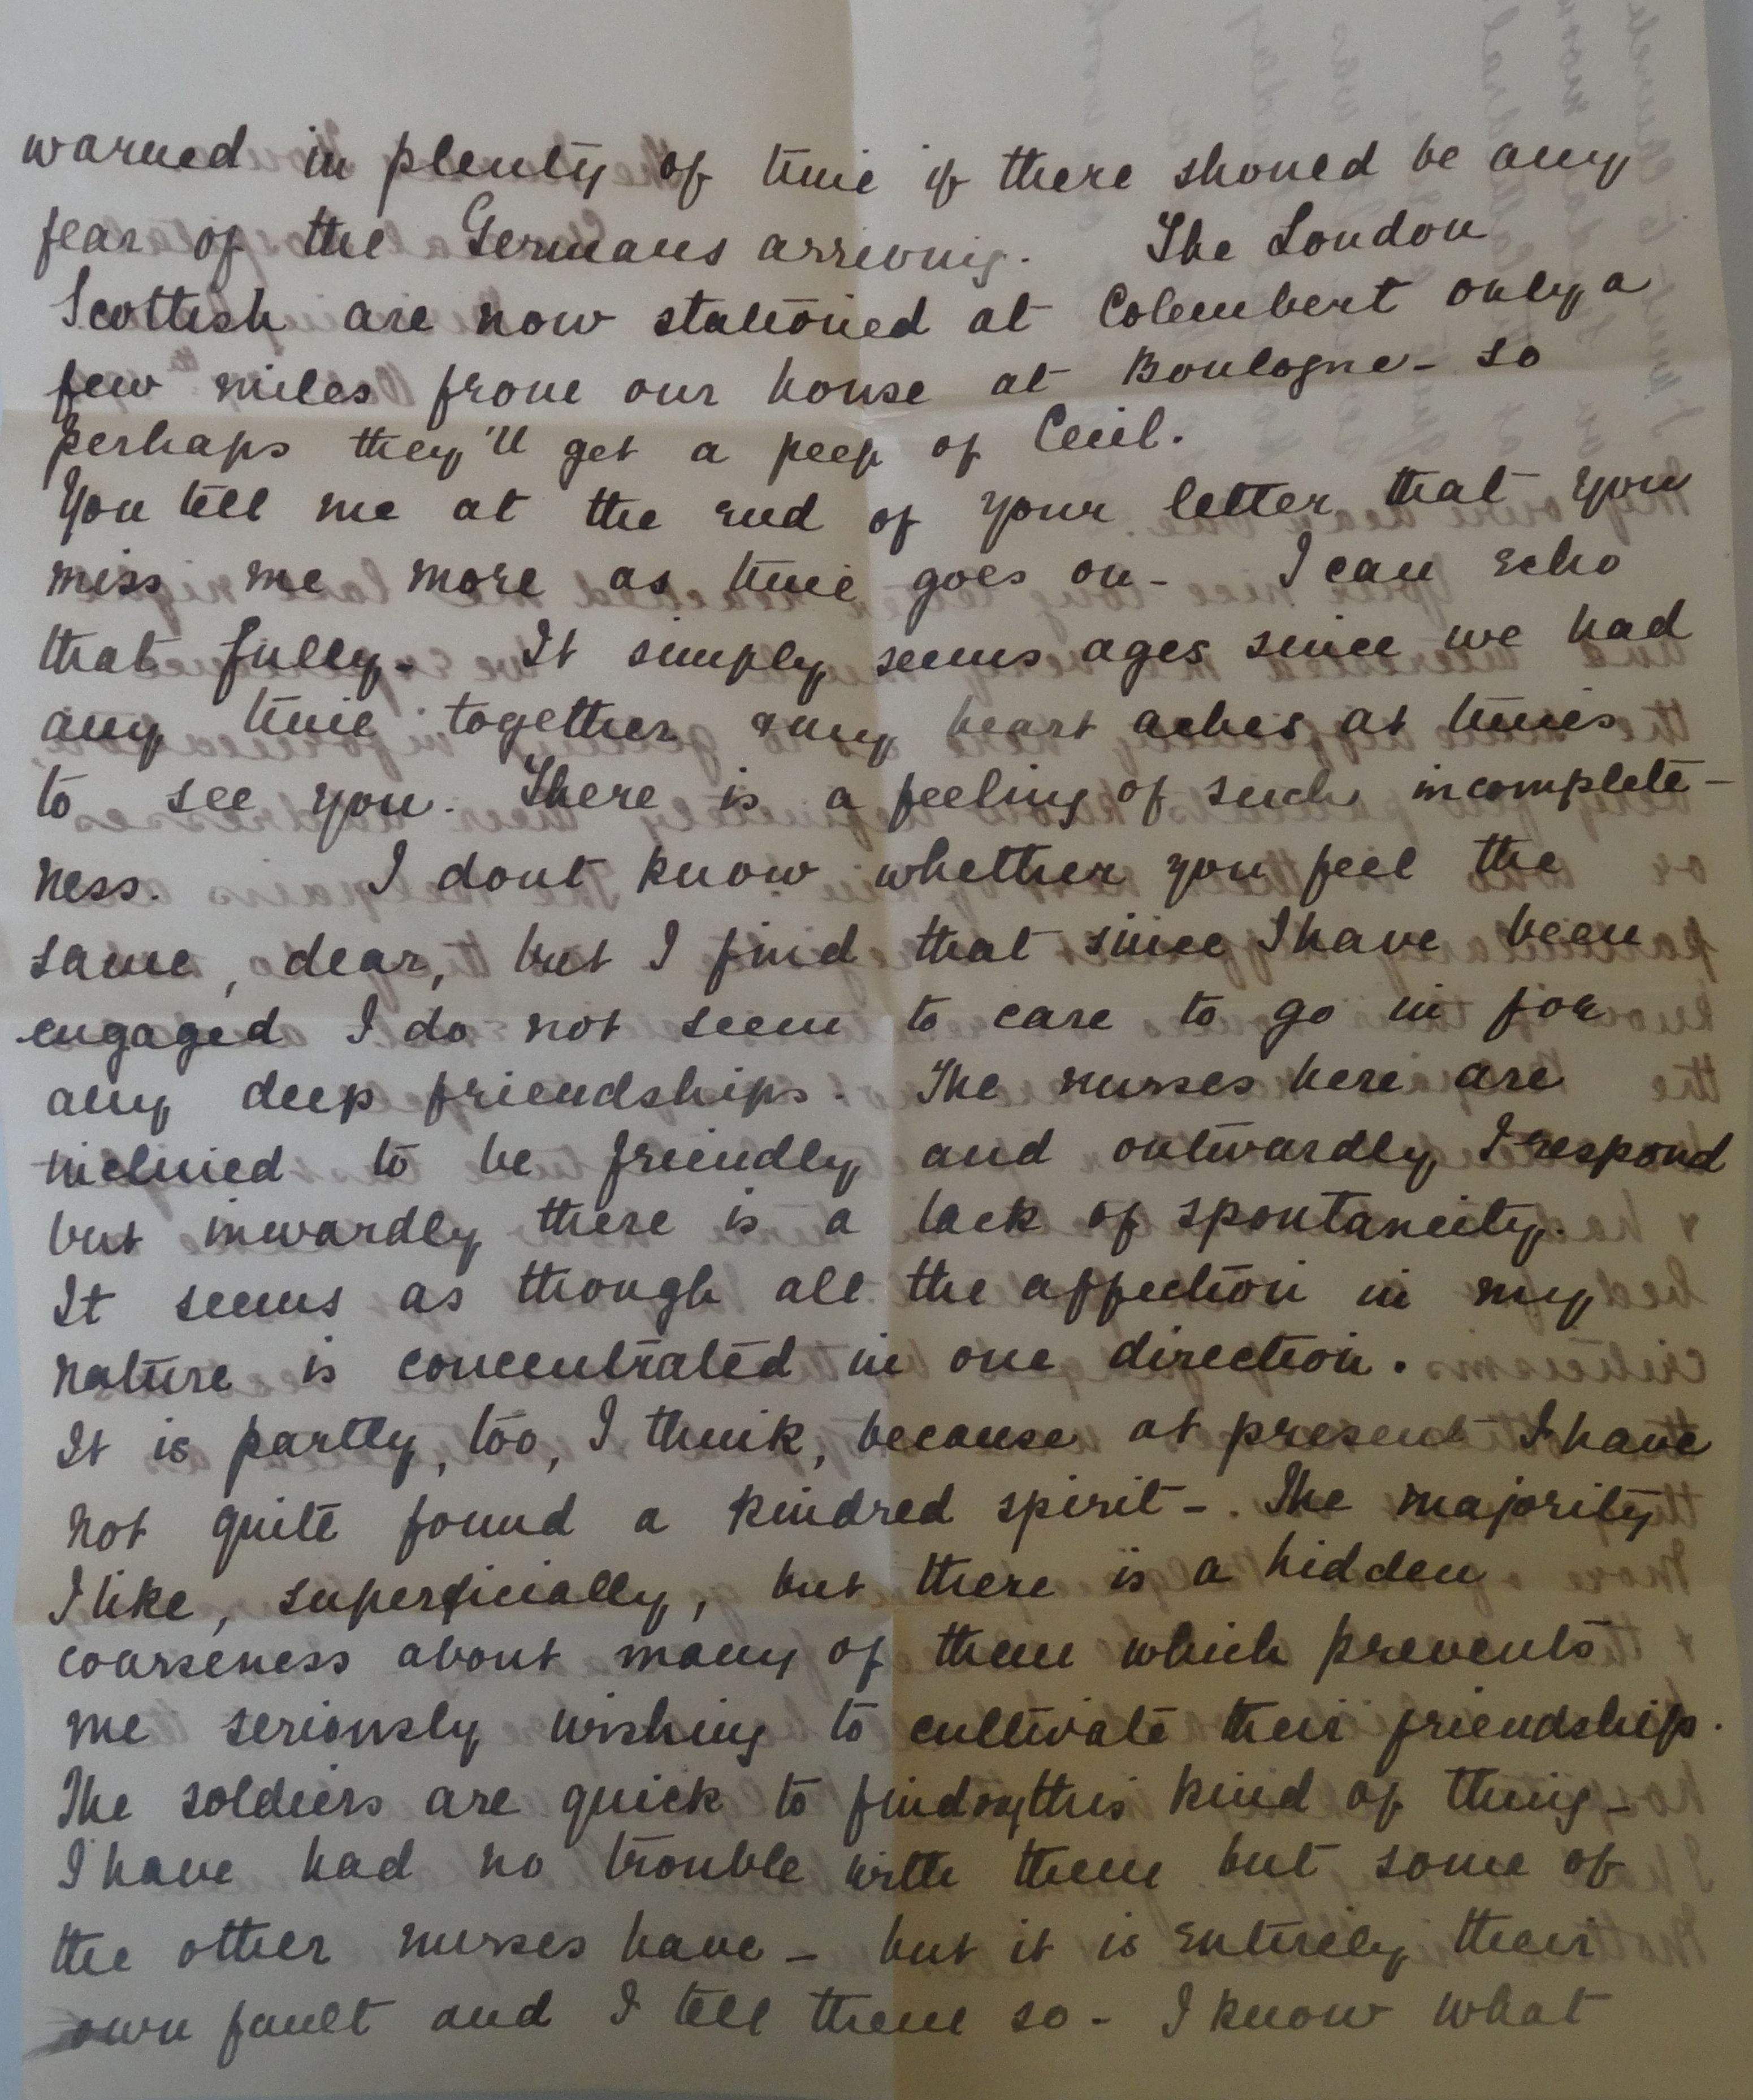 warned in plenty of time if there should be any
fear of the Germans arriving. The London
Scottish are now stationed at Colembert only a
few miles from our house at Boulogne - so
perhaps they'll get a peep of Cecil.
You tell me at the end of your letter that you
miss me more as time goes on - I can echo
that fully - It simply seems ages since we had
any time together & my heart aches at times
to see you. There is a feeling of such incomplete-
ness. I dont know whether you feel the
same, dear, but I find that since I have been
engaged I do not seem to care to go in for
any deep friendships. The nurses here are
inclined to be friendly and outwardly I respond
but inwardly there is a lack of spontaneity.
It seems as though all the affection in my
nature is concentrated in one direction.
It is partly, too, I think, because at present I have
not quite found a kindred spirit - The majority
I like, superficially, but there is a hidden
coarseness about many of them which prevents
me seriously wishing to cultivate their friendship.
The soldiers are quick to find this kind of thing -
I have had no trouble with them but some of
the other nurses have - but it is entirely their
own fault and I tell them so - I know what